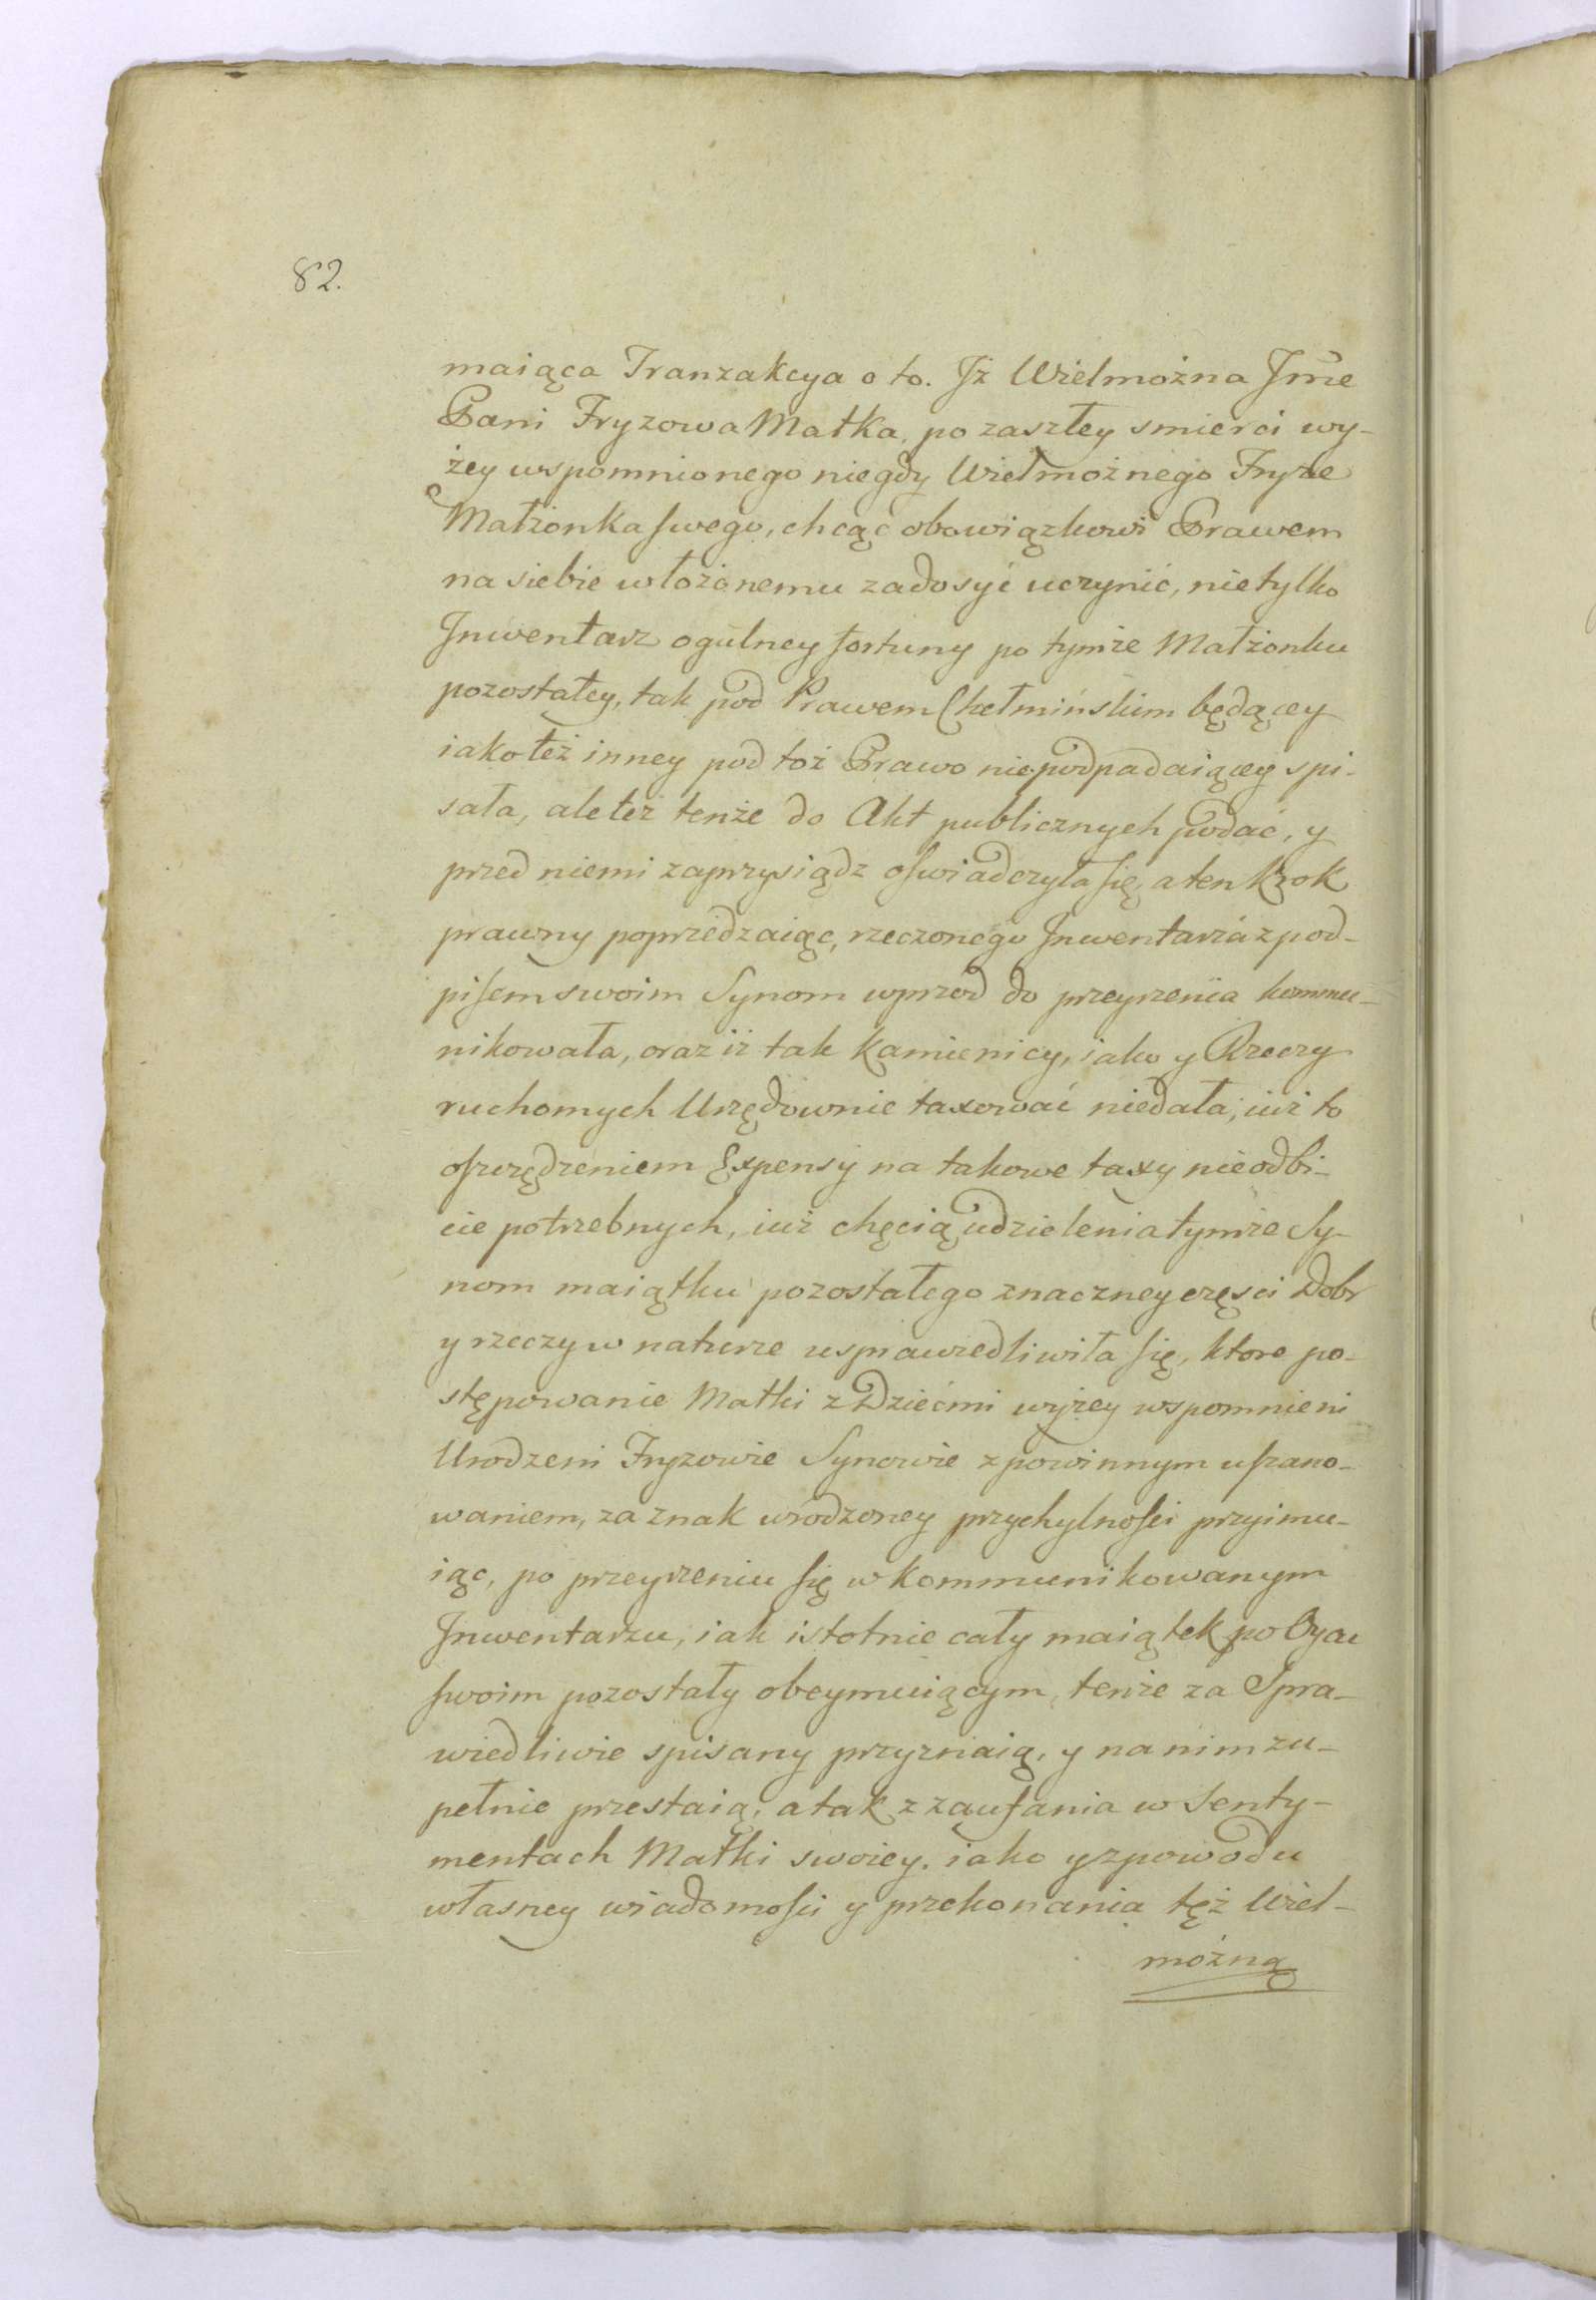 82.
maiąca Tranzakcya o to. Jż Wielmożna Jme
Pani Fryzowa Matka, po zaszłey smierci wy-
żey wspomnionego niegdy Wielmożnego Fryze
Małżonka swego, chcąc obowiązkowi Prawem
na siebie włożonemu zadosyć uczynić, nietylko
Jnwentarz ogulney fortuny po tymże Małżonku
pozostałey, tak pod Prawem Chełmińskim będącey
iako też inney pod toż Prawo niepodpadaiącey spi-
sała, ale też tenże do Akt publicznych podać, y
przed niemi zaprzysiądz oswiadczyła się, a ten krok
prawny poprzedzaiąc, rzeczonego Jnwentarza z pod-
pisem swoim Synom wprzod do przeyrzenia kommu-
nikowała, oraz iż tak Kamienicy, iako y Rzeczy
ruchomych Urzędownie taxować niedała, iuż to
oszczędzeniem Expensy na takowe taxy nieodbi-
cie potrzebnych, iuż chęcią udzielenia tymże Sy-
nom maiątku pozostałego znaczney częsci Dobr
y rzeczy w naturze usprawiedliwiła się, ktore po-
stępowanie Matki z Dziećmi wyżey wspomnieni
Urodzeni Fryzowie Synowie z powinnym uszano-
waniem, za znak wrodzoney przychylnosci przyimu-
iąc, po przeyrzeniu się w kommunikowanym
Jnwentarzu, iak istotnie cały maiątek po Oycu
swoim pozostały obeymuiącym, tenże za Spra-
wiedliwie spisany przyznaią, y na nim zu-
pełnie przestaią, a tak z zaufania w Senty-
mentach Matki swoiey, iako y z powodu
własney wiadomosci y przekonania tęż Wiel-
możną